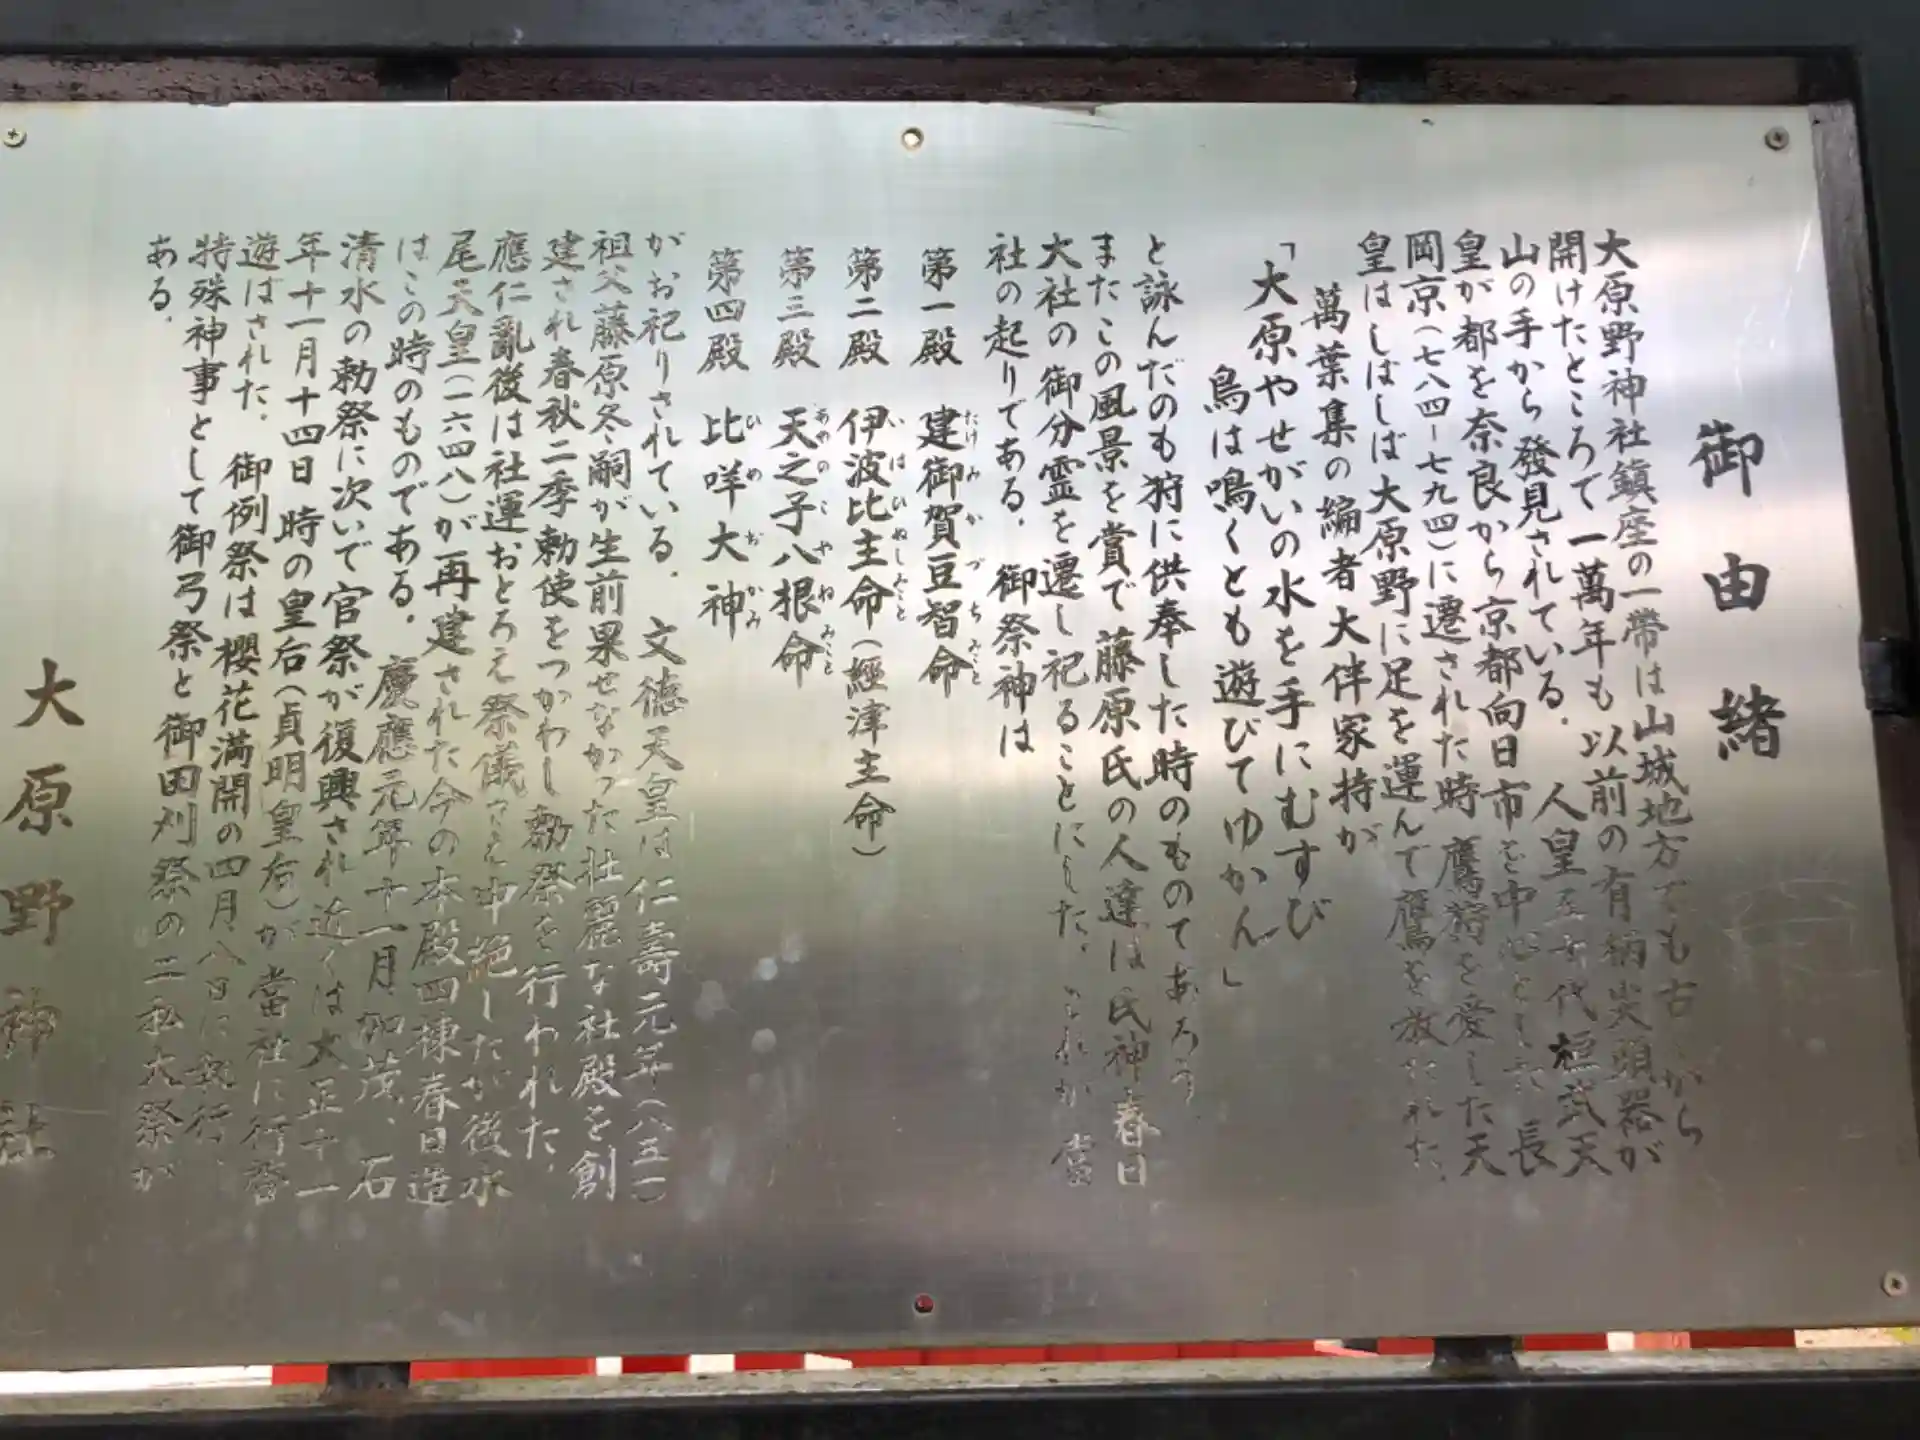 御由緒
大原野神社鎮座の一帯は山城地方でも古くから
開けたところで一萬年も以前の有柄尖頭器が
山の手から發見されている．人皇五十代桓武天
皇が都を奈良から京都向日市を中心とした長
岡京(七八四-七九四)に遷された時鷹狩を愛した天
皇はしばしば大原野に足を運んで鷹を放たれた．
萬葉集の編者大伴家持が
「大原やせがいの水を手にむすび
鳥は鳴くとも遊びてゆかん」
と詠んだのも狩に供奉した時のものであろう．
またこの風景を賞で藤原氏の人達は氏神春日
大社の御分霊を遷し祀ることにした．これが當
社の起りである．御祭神は
第一殿 建御賀豆智命
たけみかづちみこと
第二殿 伊波比主命(經津主命)
いはひぬしみこと
第三殿 天之子八根命
あめのこやねみこと
第四殿 比咩大神
ひめおかみ
がお祀りされている．文徳天皇は仁壽元年(八五一)
祖父藤原冬嗣が生前果せなかった壮麗な社殿を創
建され春秋二季勅使をつかわし勅祭を行われた．
應仁亂後は社運おとろえ祭儀さえ中絶したが後水
尾天皇(一六四八)が再建された今の本殿四棟春日造
はこの時のものである．慶應元年十一月加茂、石
清水の勅祭に次いで官祭が復興され近くは大正十一
年十一月十四日時の皇后(貞明皇后)が當社に行啓
遊ばされた．御例祭は櫻花満開の四月八日に執行、
特殊神事として御弓祭と御田刈祭の二私大祭が
ある．
大原野神社